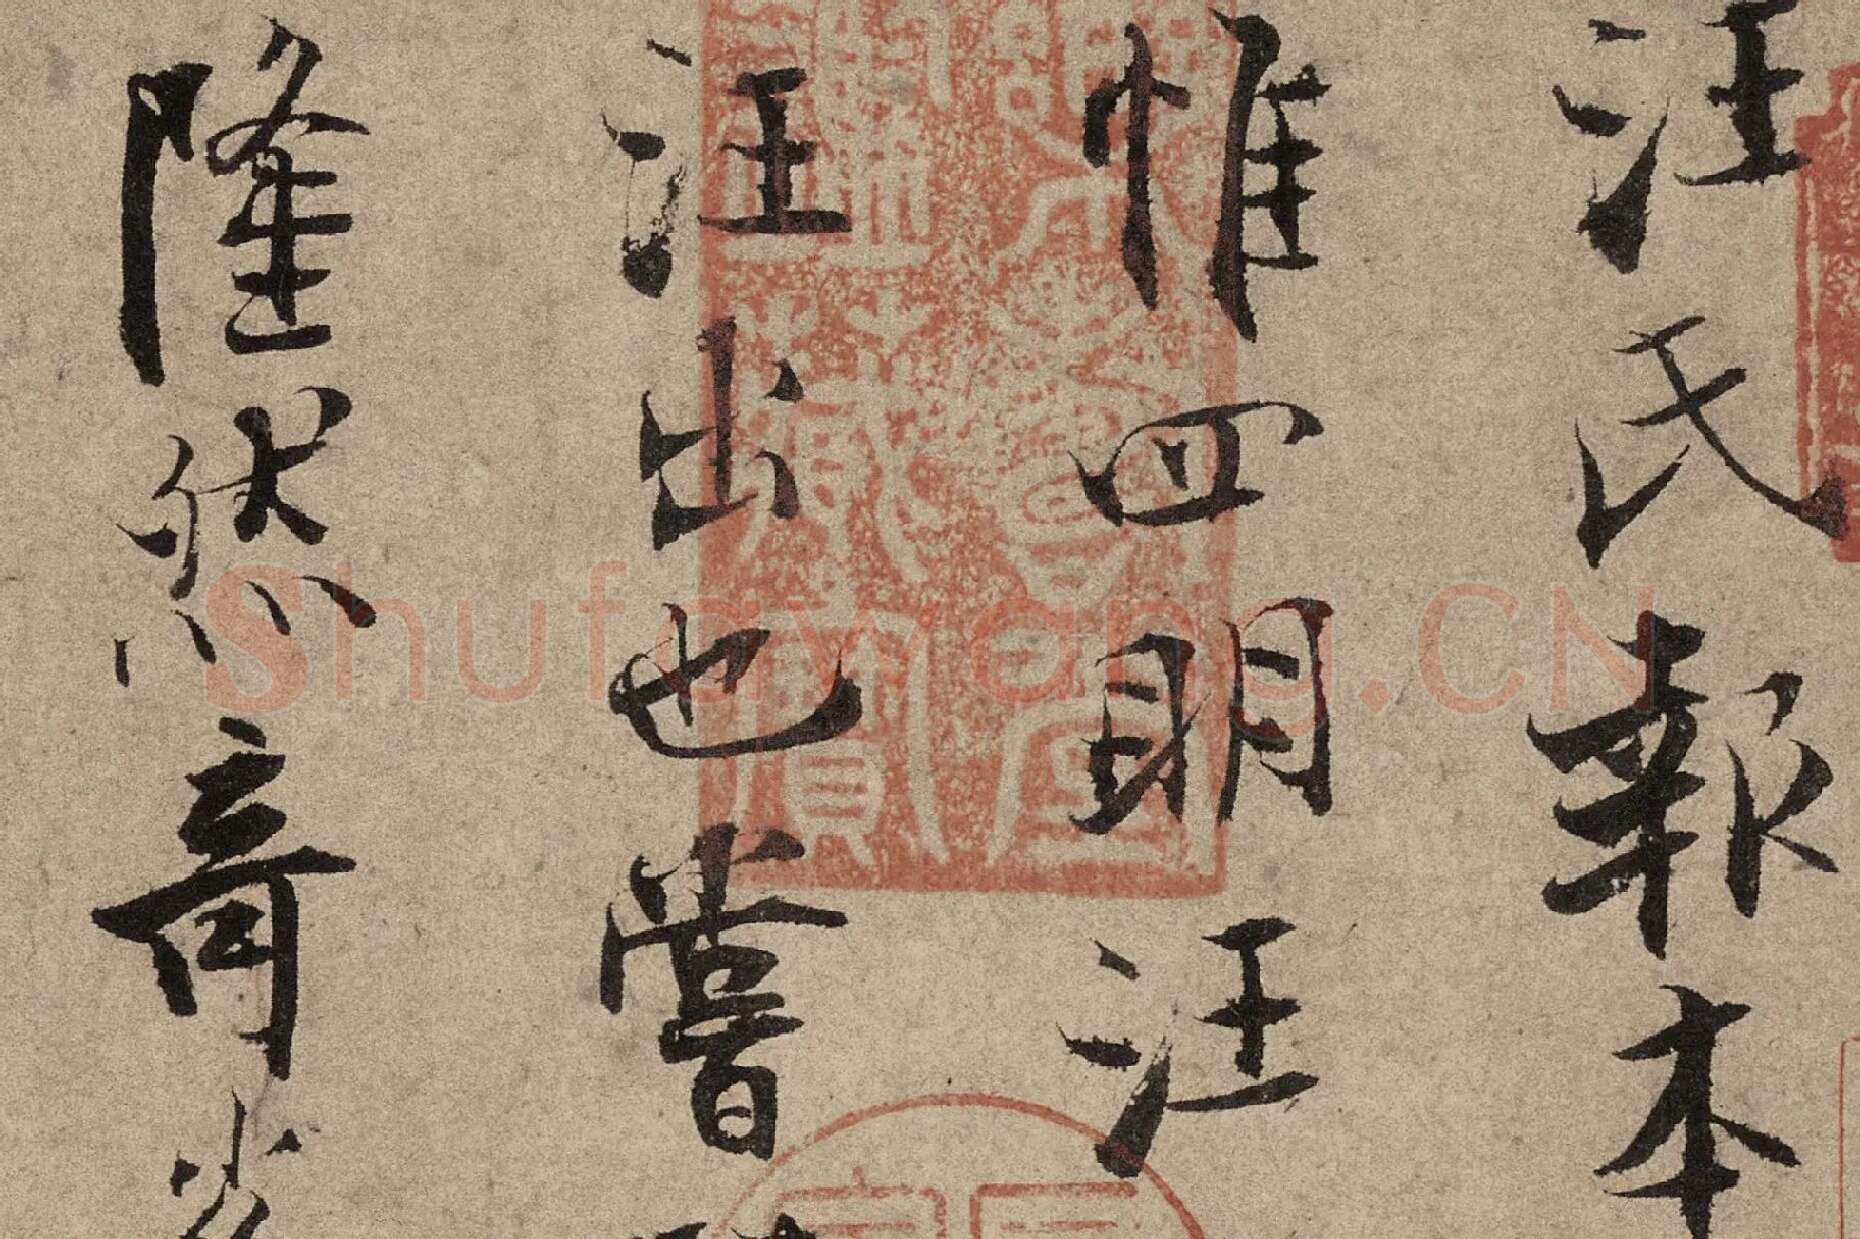 汪氏報本
惟四明汪
汪出也嘗
隆然奇
Shufawang.CN